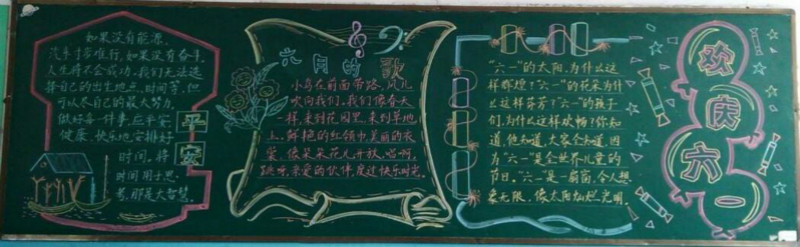 如果没有能源,
汽车寸步难行,如果没有奋斗,
人生将不会成功。我们无法选
择自己的出生地点、时间等,但
可以尽自己的最大努力,
做好每一件事,应平安
健康、快乐地安排好
时间,将
时间用于思
考,那是大智慧。
平安
六月的歌
小鸟在前面带路,风儿
吹向我们,我们像春天
一样,来到花园里,来到草地
上,鲜艳的红领巾,美丽的衣
裳,像朵朵花儿开放,唱啊,
跳呀,亲爱的伙伴,度过快乐时光
"六一"的太阳,为什么这
样辉煌?"六一"的花朵为什
么这样芬芳?"六一"的孩子
们,为什么这样欢畅?你知
道,他知道,大家全知道,因
为"六一"是全世界儿童的
节日,"六一"是一扇窗,令人想
象无限,像太阳灿烂光明。
欢庆六一